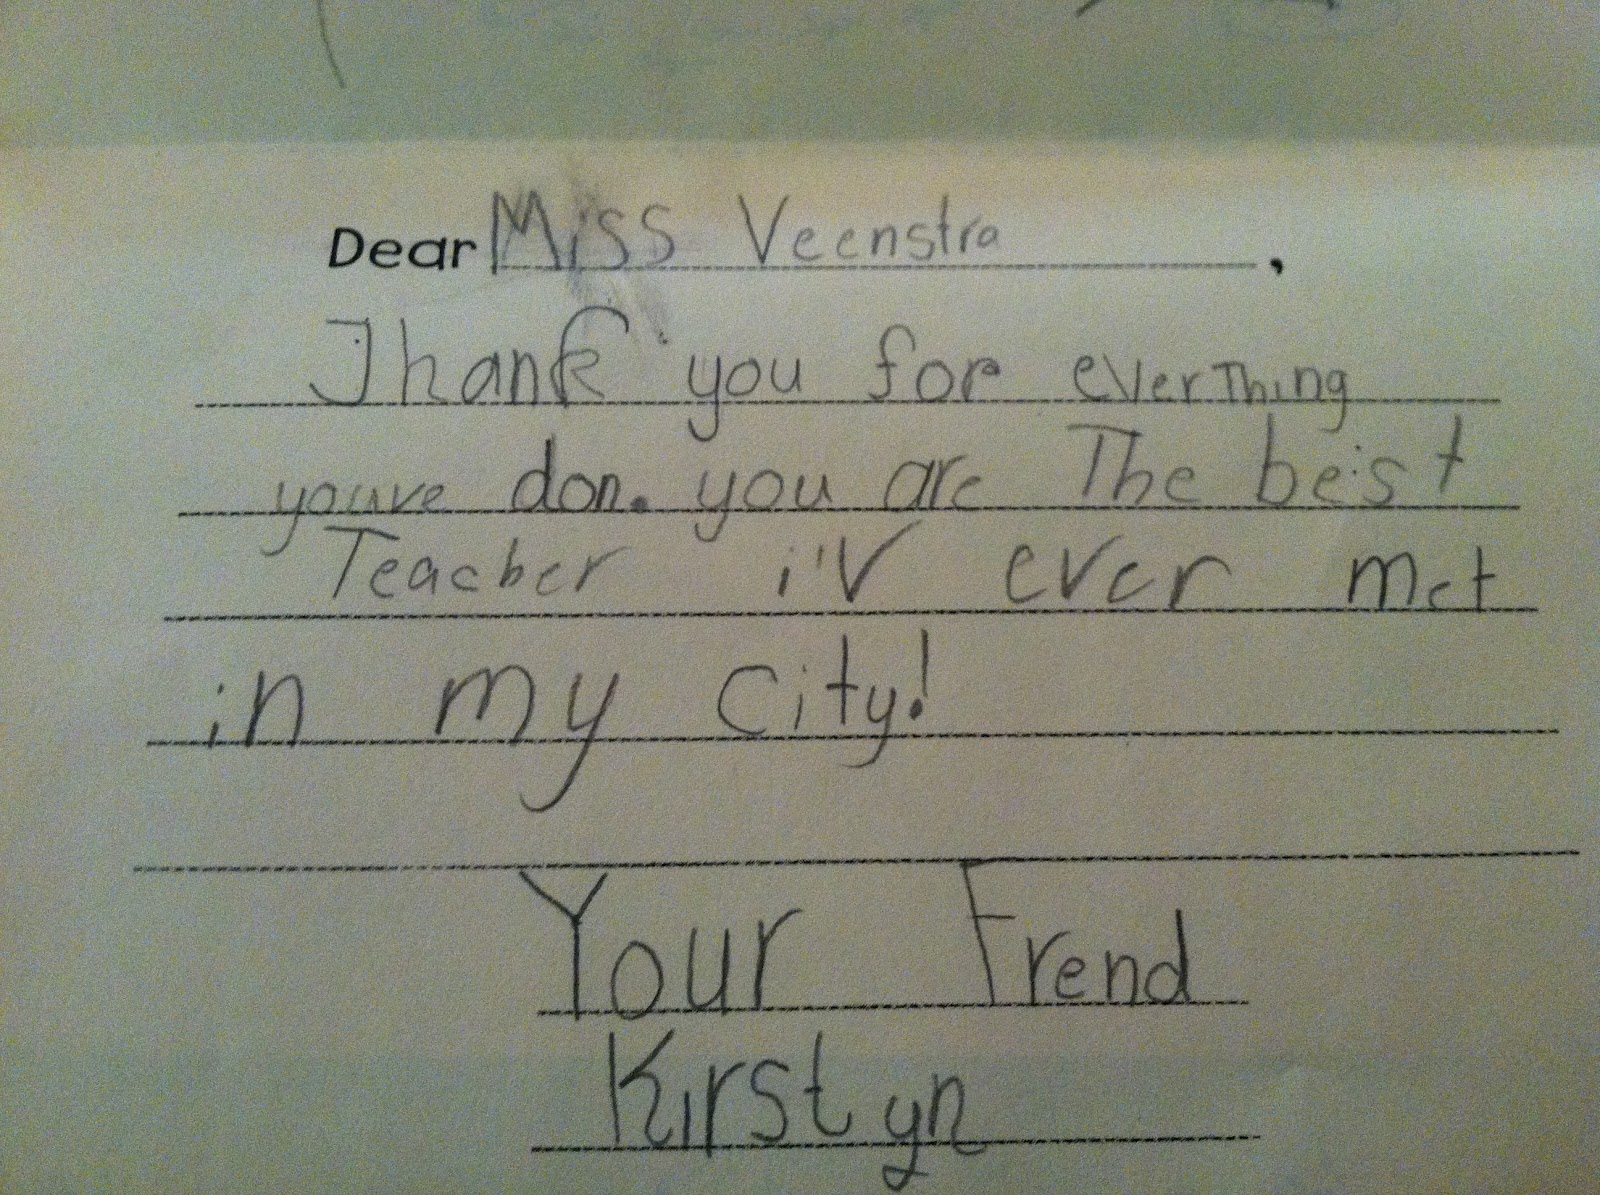 Dear Miss Veenstra,
Thank you for everThing
youve don. you are The best
Teacher i'v ever met
in my city!
Your Frend
Kirstyn